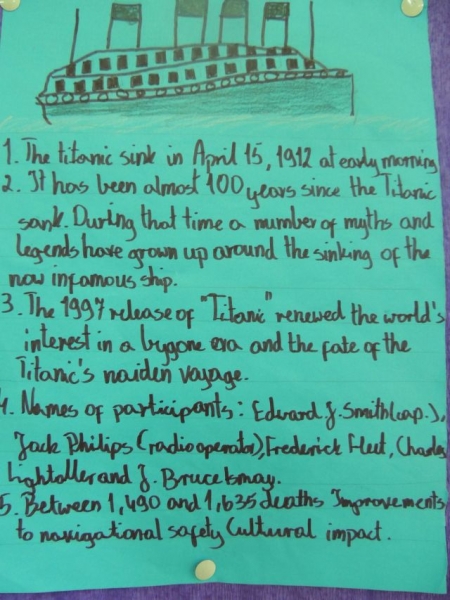 1. The titanic sink in April 15, 1912 at early morning
2. It has been almost 100 years since the Titanic
sank. During that time a number of myths and
legends have grown up around the sinking of the
now infamous ship.
3. The 1997 release of "Titanic" renewed the world's
interest in a bygone era and the fate of the
Titanic's maiden voyage.
4. Names of participants: Edward J. Smith(cap.),
Jack Philips (radio operator), Frederick Fleet, Charles
Lightoller and J. Bruce Ismay.
5. Between 1,490 and 1,635 deaths Improvements
to navigational safety Cultural impact.